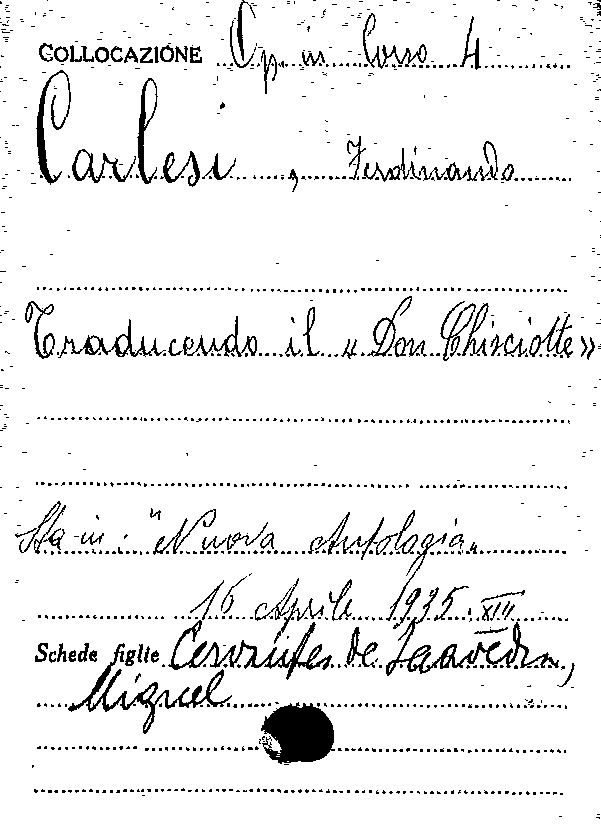 COLLOCAZIONE Op. in Corso 4
Carlesi, Ferdinando
Traducendo il « Don Chisciotte »
Sta in: "Nuova Antologia"
16 Aprile 1935. XIII
Schede figlie Cervantes de Saavedra,
Miguel